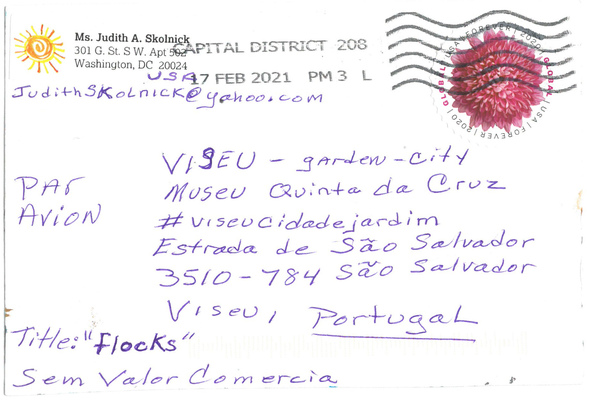 Ms. Judith A. Skolnick
301 G. St. S W. Apt 502
Washington, DC 20024
USA
JudithSKolnick@yahoo.com
CAPITAL DISTRICT 208
17 FEB 2021 PM 3 L
GLOBAL | USA | FOREVER | 2020 | GLOBAL | USA | FOREVER | 2020
PAr
AVION
VISEU - garden-city
Museu Quinta da Cruz
#viseucidadejardim
Estrada de São Salvador
3510-784 São Salvador
Viseu, Portugal
Title: "flocks"
Sem Valor Comercia